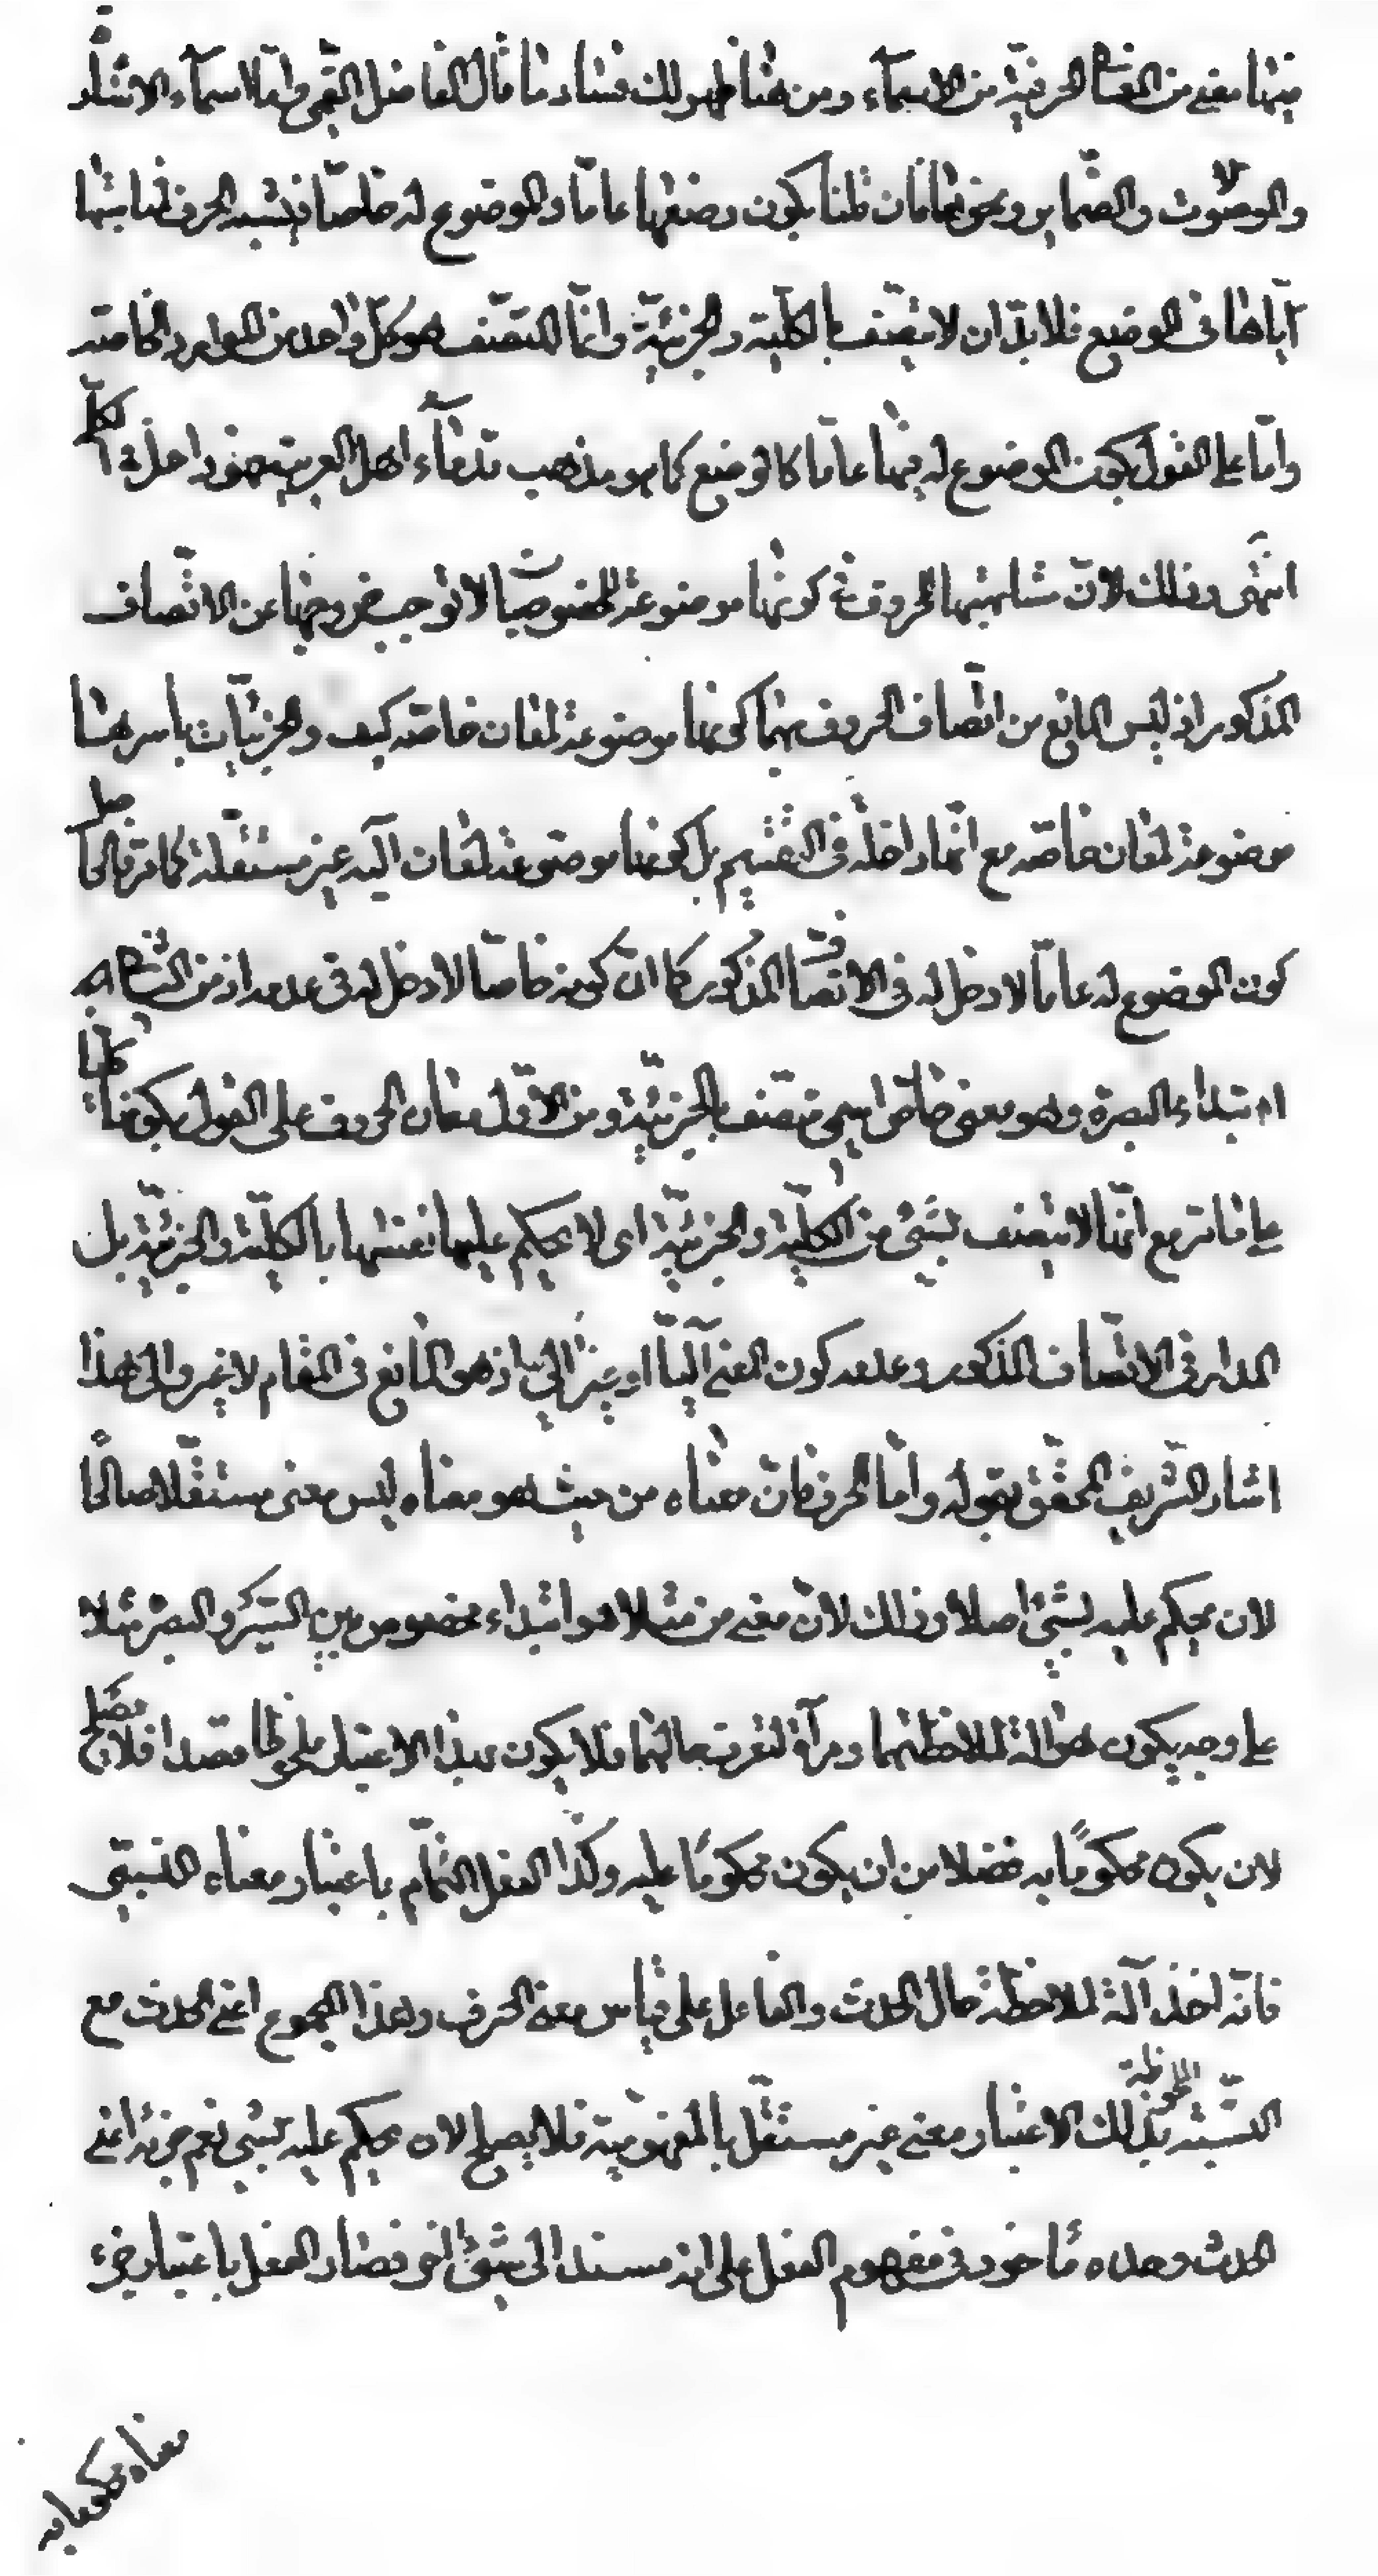 فيها معنى من المعاني الحرفية من الاسماء ومن هنا ظهر لك فساد ما قال الفاضل القمي واما الاسماء الاشارة
والموصولات والضماير ونحوها فان قلنا يكون وضعها عاما والموضوع له خاصا فيشبه الحرف لمناسبتها
اياها في الوضع فلا بد ان لا يتصف بالكلية والجزئية وانما المتصف هو كل واحد من الموارد الخاصة
واما على القول بكون الموضوع له فيها عاما كالوضع كما هو مذهب قدماء اهل العربية فهو داخل في الكلي
انتهى وذلك لان مشابهتها للحروف في كونها موضوعة للخصوصيات لا توجب خروجها عن الاتصاف
المذكور اذ ليس المانع من اتصاف الحروف بهما كونها موضوعة لمعان خاصة كيف والجزئيات باسرها
موضوعة لمعان خاصة مع انها داخلة في التقسيم بل كونها موضوعة لمعان آلية غير مستقلة كما مر فالحاصل
كون الموضوع له عاما لا دخل له في الاتصاف المذكور كما ان كونه خاصا لا دخل له في عدمه اذ من الثاني
ابتداء البصرة وهو معنى خاص اسمي متصف بالجزئية ومن الاول معان الحروف على القول بكونها كليا
على ما مر مع انها لا يتصف بشئ من الكلية والجزئية اى لا يحكم عليها نفسها بالكلية والجزئية بل
المدار في الاتصاف المذكور وعدمه كون المعنى آليا او غير آلي اذ هو المانع في المقام لا غير والى هذا
اشار الشريف المحقق بقوله واما الحرف فان معناه من حيث هو معناه ليس معنى مستقلا صالحا
لان يحكم عليه بشئ اصلا وذلك لان معنى من مثلا هو ابتداء مخصوص بين السير والبصرة مثلا
على وجه يكون هو آلة لملاحظتهما ومرآة لتعرف حالهما فلا يكون بهذا الاعتبار ملحوظا قصدا فلا يصلح
لان يكون محكوما به فضلا من ان يكون محكوما عليه وكذا الفعل التام باعتبار معناه النسبي
فانه اخذ آلة لملاحظة حال الحدث والفاعل على قياس معنى الحرف وهذا المجموع اعنى الحدث مع
النسبة الملحوظة بذلك الاعتبار معنى غير مستقل بالمفهومية فلا يصلح لان يحكم عليه بشئ نعم جزئه اعنى
الحدث وحده مأخوذ في مفهوم الفعل على انه مسند الى شئ آخر فصار الفعل باعتبار جزء
معناه محكوما به